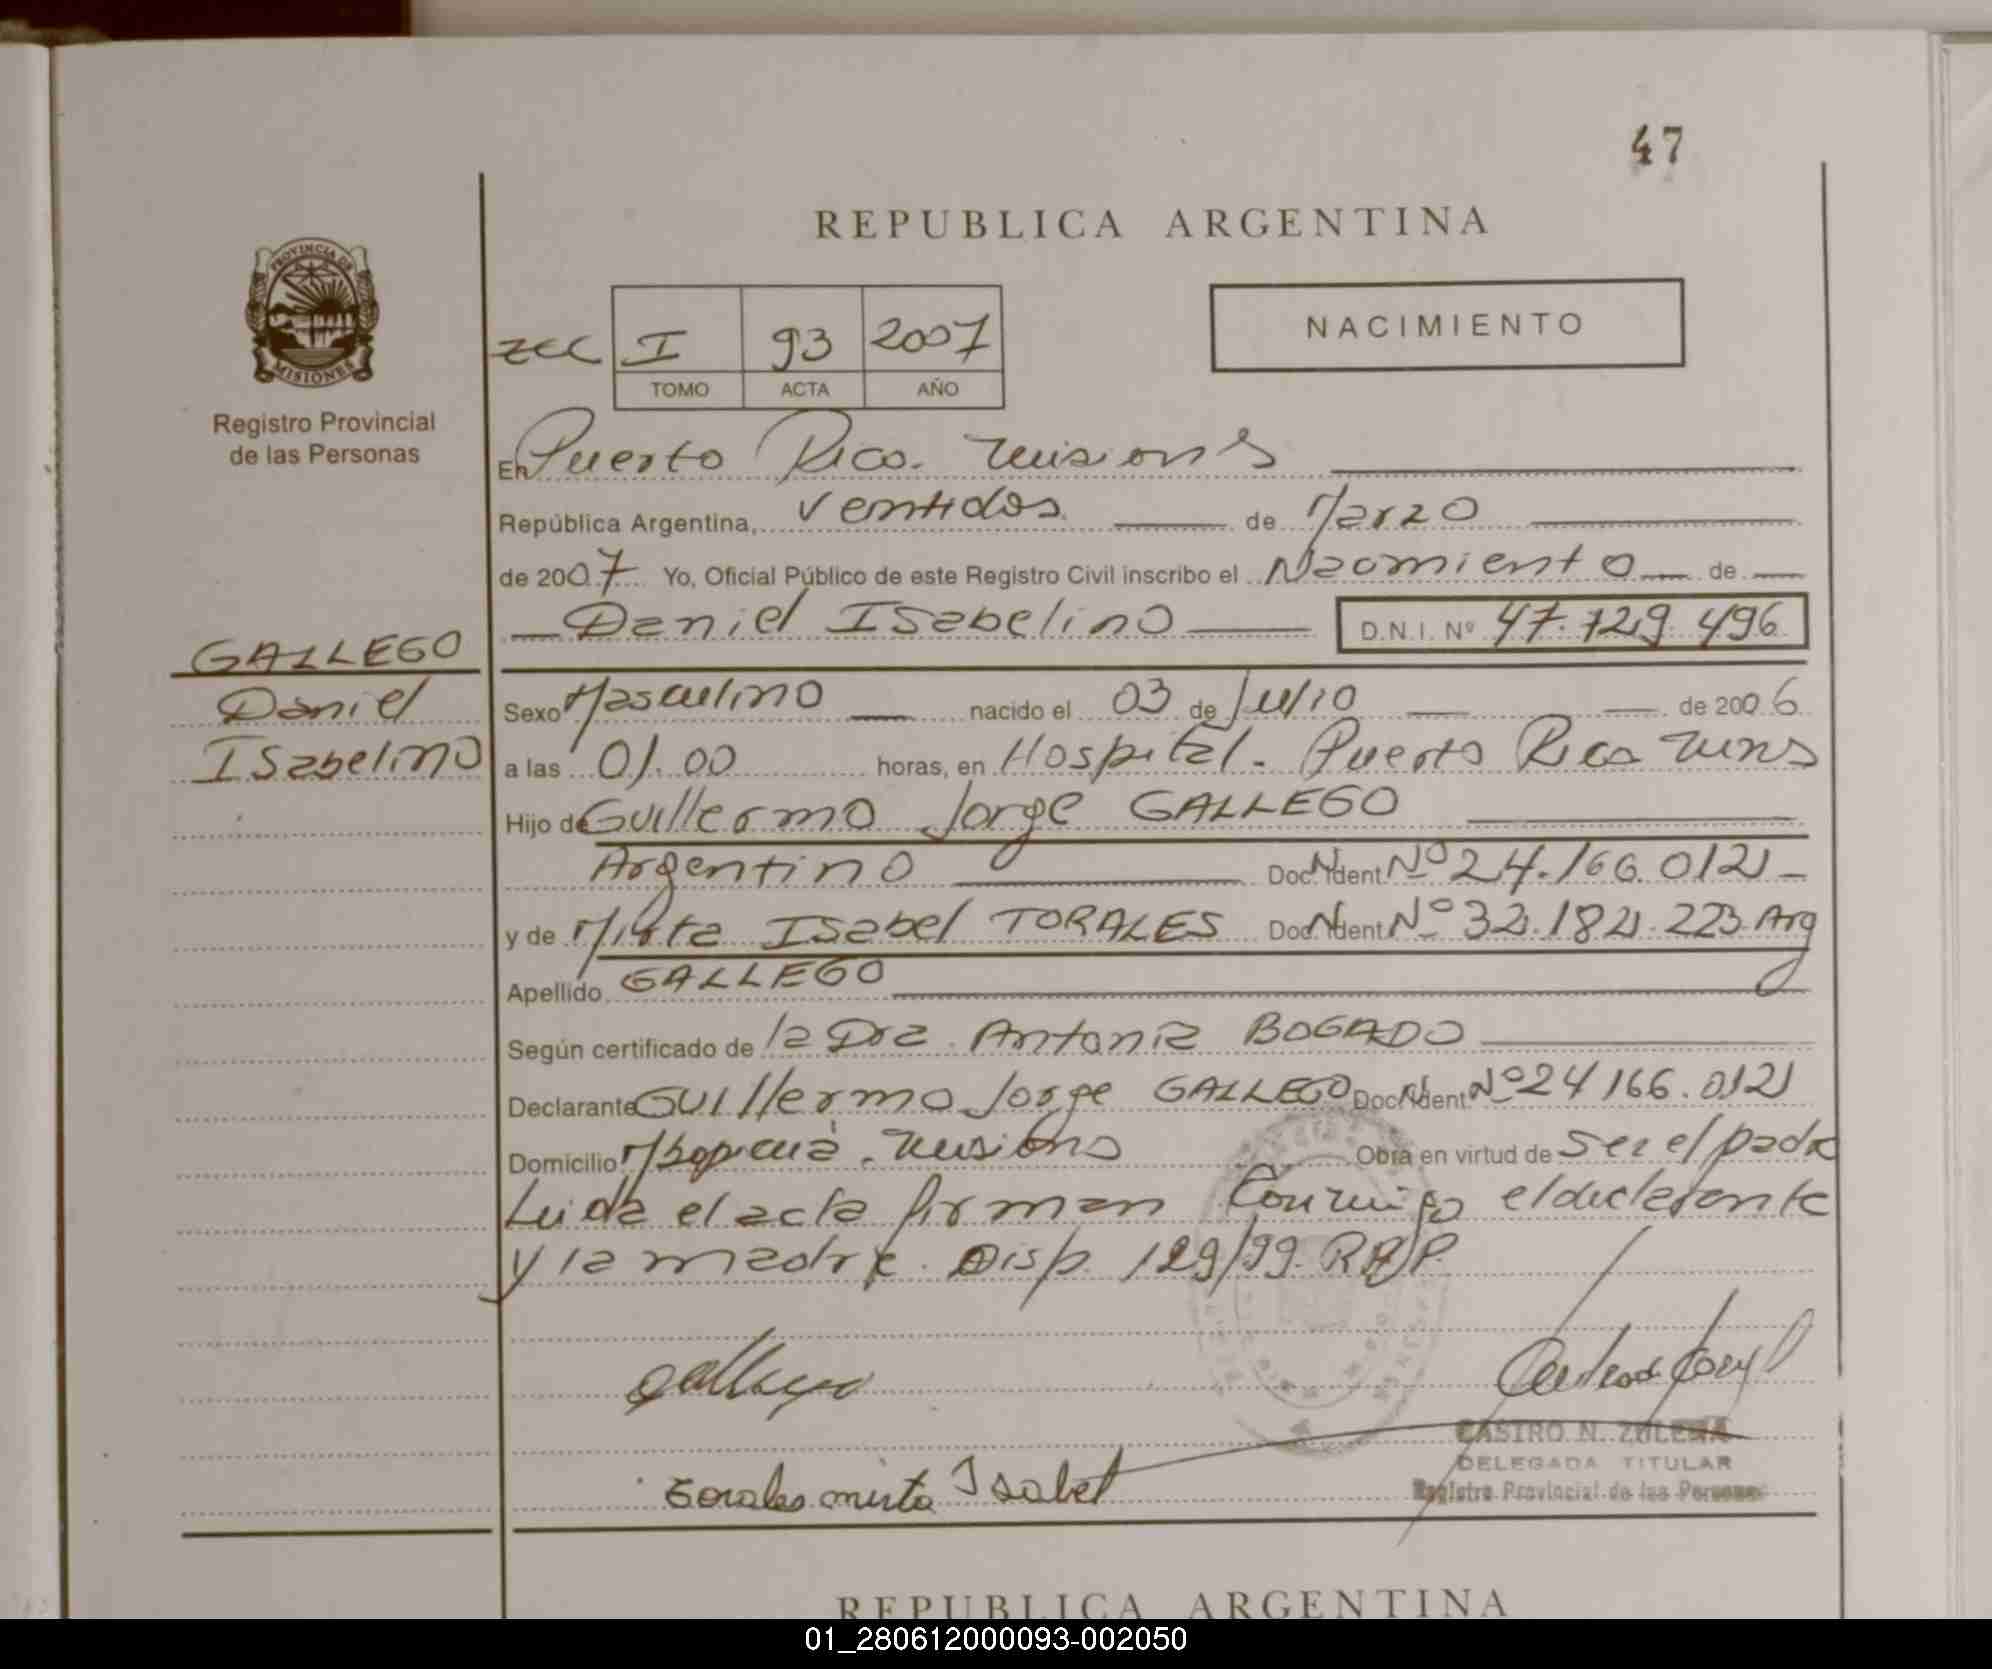 47
REPUBLICA ARGENTINA
PROVINCIA DE
MISIONES
Registro Provincial
de las Personas
I 93 2007
TOMO ACTA AÑO
NACIMIENTO
En Puerto Rico. Misions
República Argentina, Ventidos de Marzo
de 2007 Yo, Oficial Público de este Registro Civil inscribo el Nacimiento de
Daniel Isabelino D.N.I. Nº 47.729.496
GALLEGO
Daniel
Isabelino
Sexo Masculino nacido el 03 de Julio de 2006
a las 01.00 horas, en Hospital. Puerto Rico Mns
Hijo de Guillermo Jorge GALLEGO
Argentino Doc. Ident. Nº 24.166.012
y de Mirta Isabel TORALES Doc. Ident. Nº 32.182.223 Arg
Apellido GALLEGO
Según certificado de la Dra. Antonia BOGADO
Declarante Guillermo Jorge GALLEGO Doc. Ident. Nº 24166.012
Domicilio Mbopicuá. Misions Obra en virtud de ser el padre
Leida el acta firman conmigo el declarante
y la madre. Disp. 129/99. R.P.P.
Gallego
CASTRO N. ZULEMA
DELEGADA TITULAR
Registro Provincial de las Personas
Torales mirta Isabel
REPUBLICA ARGENTINA
01_280612000093-002050